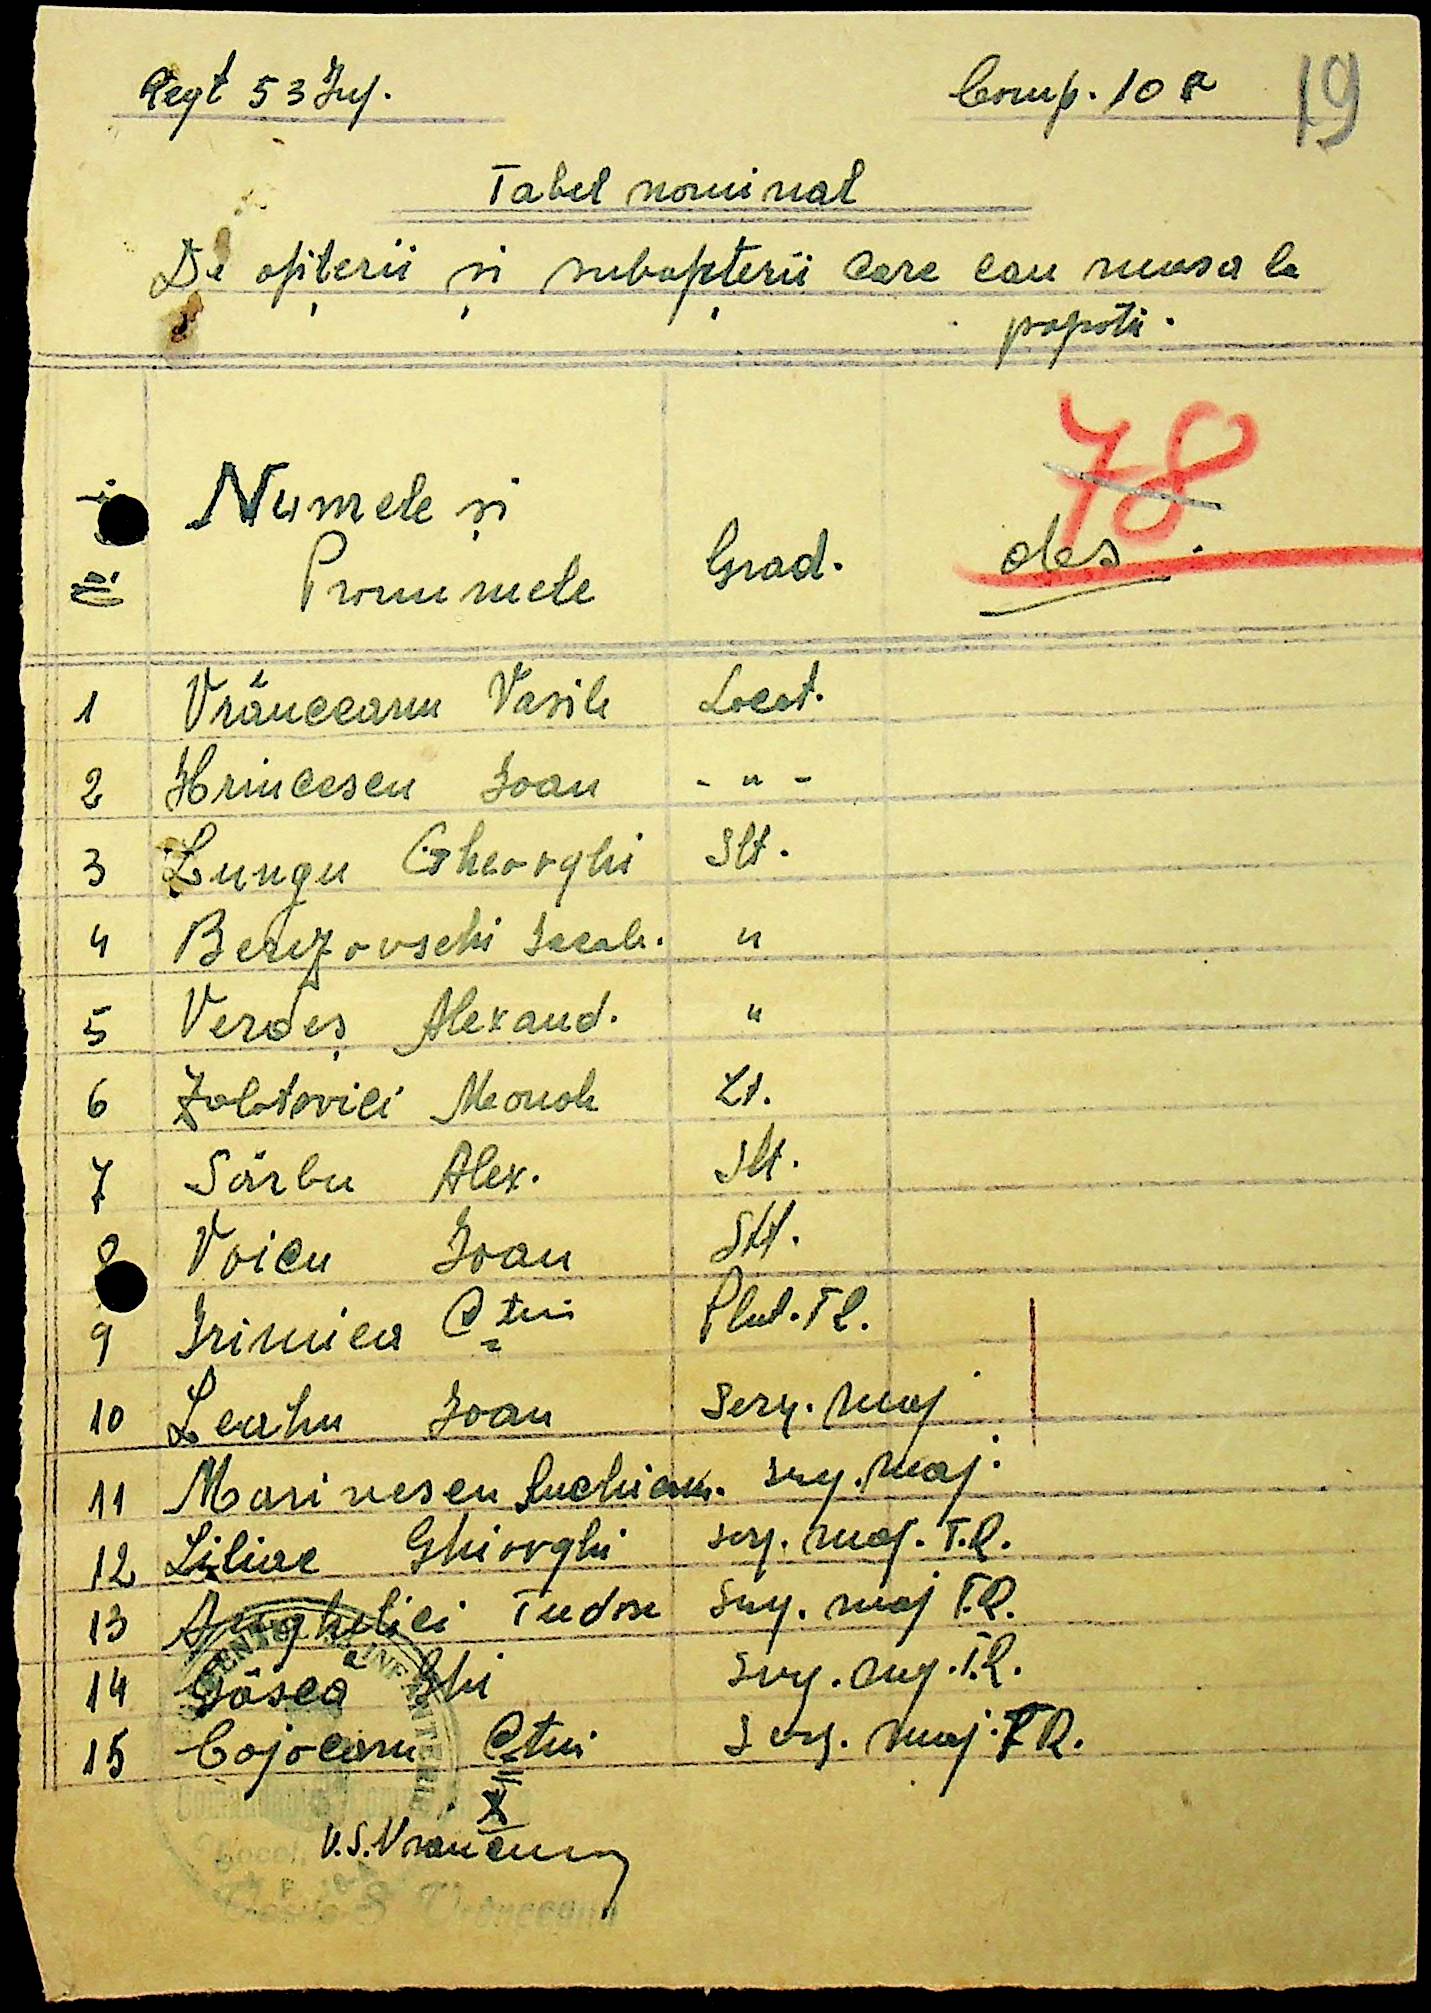 Regt 53 Inf. Comp. 10 a 19
Tabel nominal
De ofițerii și subofițerii care eau masa la
popotă.
78
Numele și
Pronumele Grad. obs.
1 Vrânceanu Vasile Locot.
2 Hrincescu Ioan - " -
3 Lungu Gheorghi Slt.
4 Berezovschi Iacob. "
5 Verdeș Alexand. "
6 Zolotovici Manole Lt.
7 Sârbu Alex. Slt.
8 Voicu Ioan Slt.
9 Irimica Ctin Plut. T.R.
10 Leahu Ioan Serg. maj
11 Marinescu Luchian. serg. maj.
12 Liliac Ghiorghi serg. maj. T.R.
13 Anghelici Tudor serg. maj T.R.
14 Gâscă Ghi serg. maj. T.R.
15 Cojocaru Ctin serg. maj. T.R.
V.S. Vranceanu
INFANTERIE
Comandantul
Locot.
Vasile S Vrânceanu